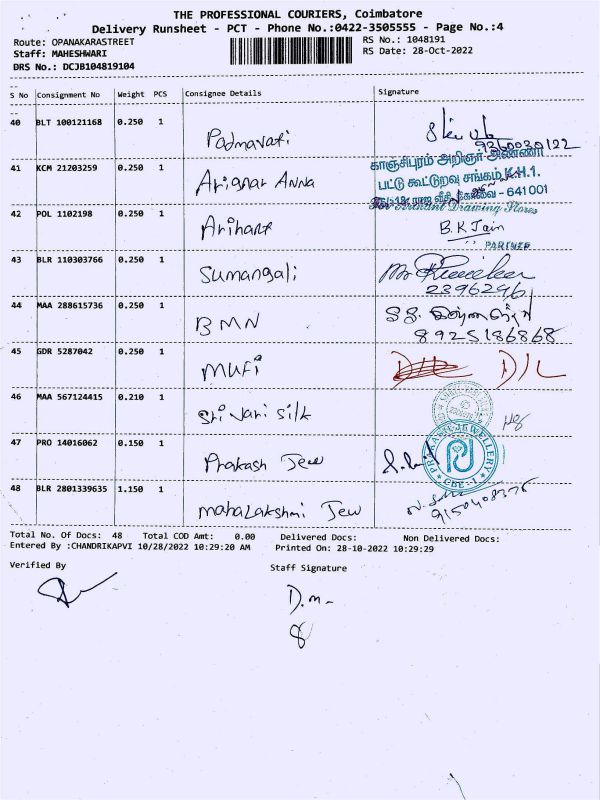 THE PROFESSIONAL COURIERS, Coimbatore
Delivery Runsheet - PCT - Phone No.:0422-3505555 - Page No.:4
Route: OPANAKARASTREET RS No.: 1048191
Staff: MAHESHWARI RS Date: 28-Oct-2022
DRS No.: DCJB104819104
S No Consignment No Weight PCS Consignee Details Signature
40 BLT 100121168 0.250 1
Padmavati 9360030122
41 KCM 21203259 0.250 1 காஞ்சிபுரம் அறிஞர் அண்ணா
Arignar Anna பட்டு கூட்டுறவு சங்கம் K.H.1.
கோவை - 641 001
42 POL 1102198 0.250 1 For Arihant Drawing Stores
Arihant B.K Jain
PARTNER
43 BLR 110303766 0.250 1
Sumangali 2396296
44 MAA 288615736 0.250 1
BMN 8925186868
45 GDR 5287042 0.250 1
Mufi D/L D/L
46 MAA 567124415 0.210 1
Sri Vari Silk
47 PRO 14016062 0.150 1
Prakash Jew PRAKASH JEWELLERY CBE-1
48 BLR 2801339635 1.150 1
Mahalakshmi Jew 9150408375
Total No. Of Docs: 48 Total COD Amt: 0.00 Delivered Docs: Non Delivered Docs:
Entered By :CHANDRIKAPVI 10/28/2022 10:29:20 AM Printed On: 28-10-2022 10:29:29
Verified By Staff Signature
D.m-
8